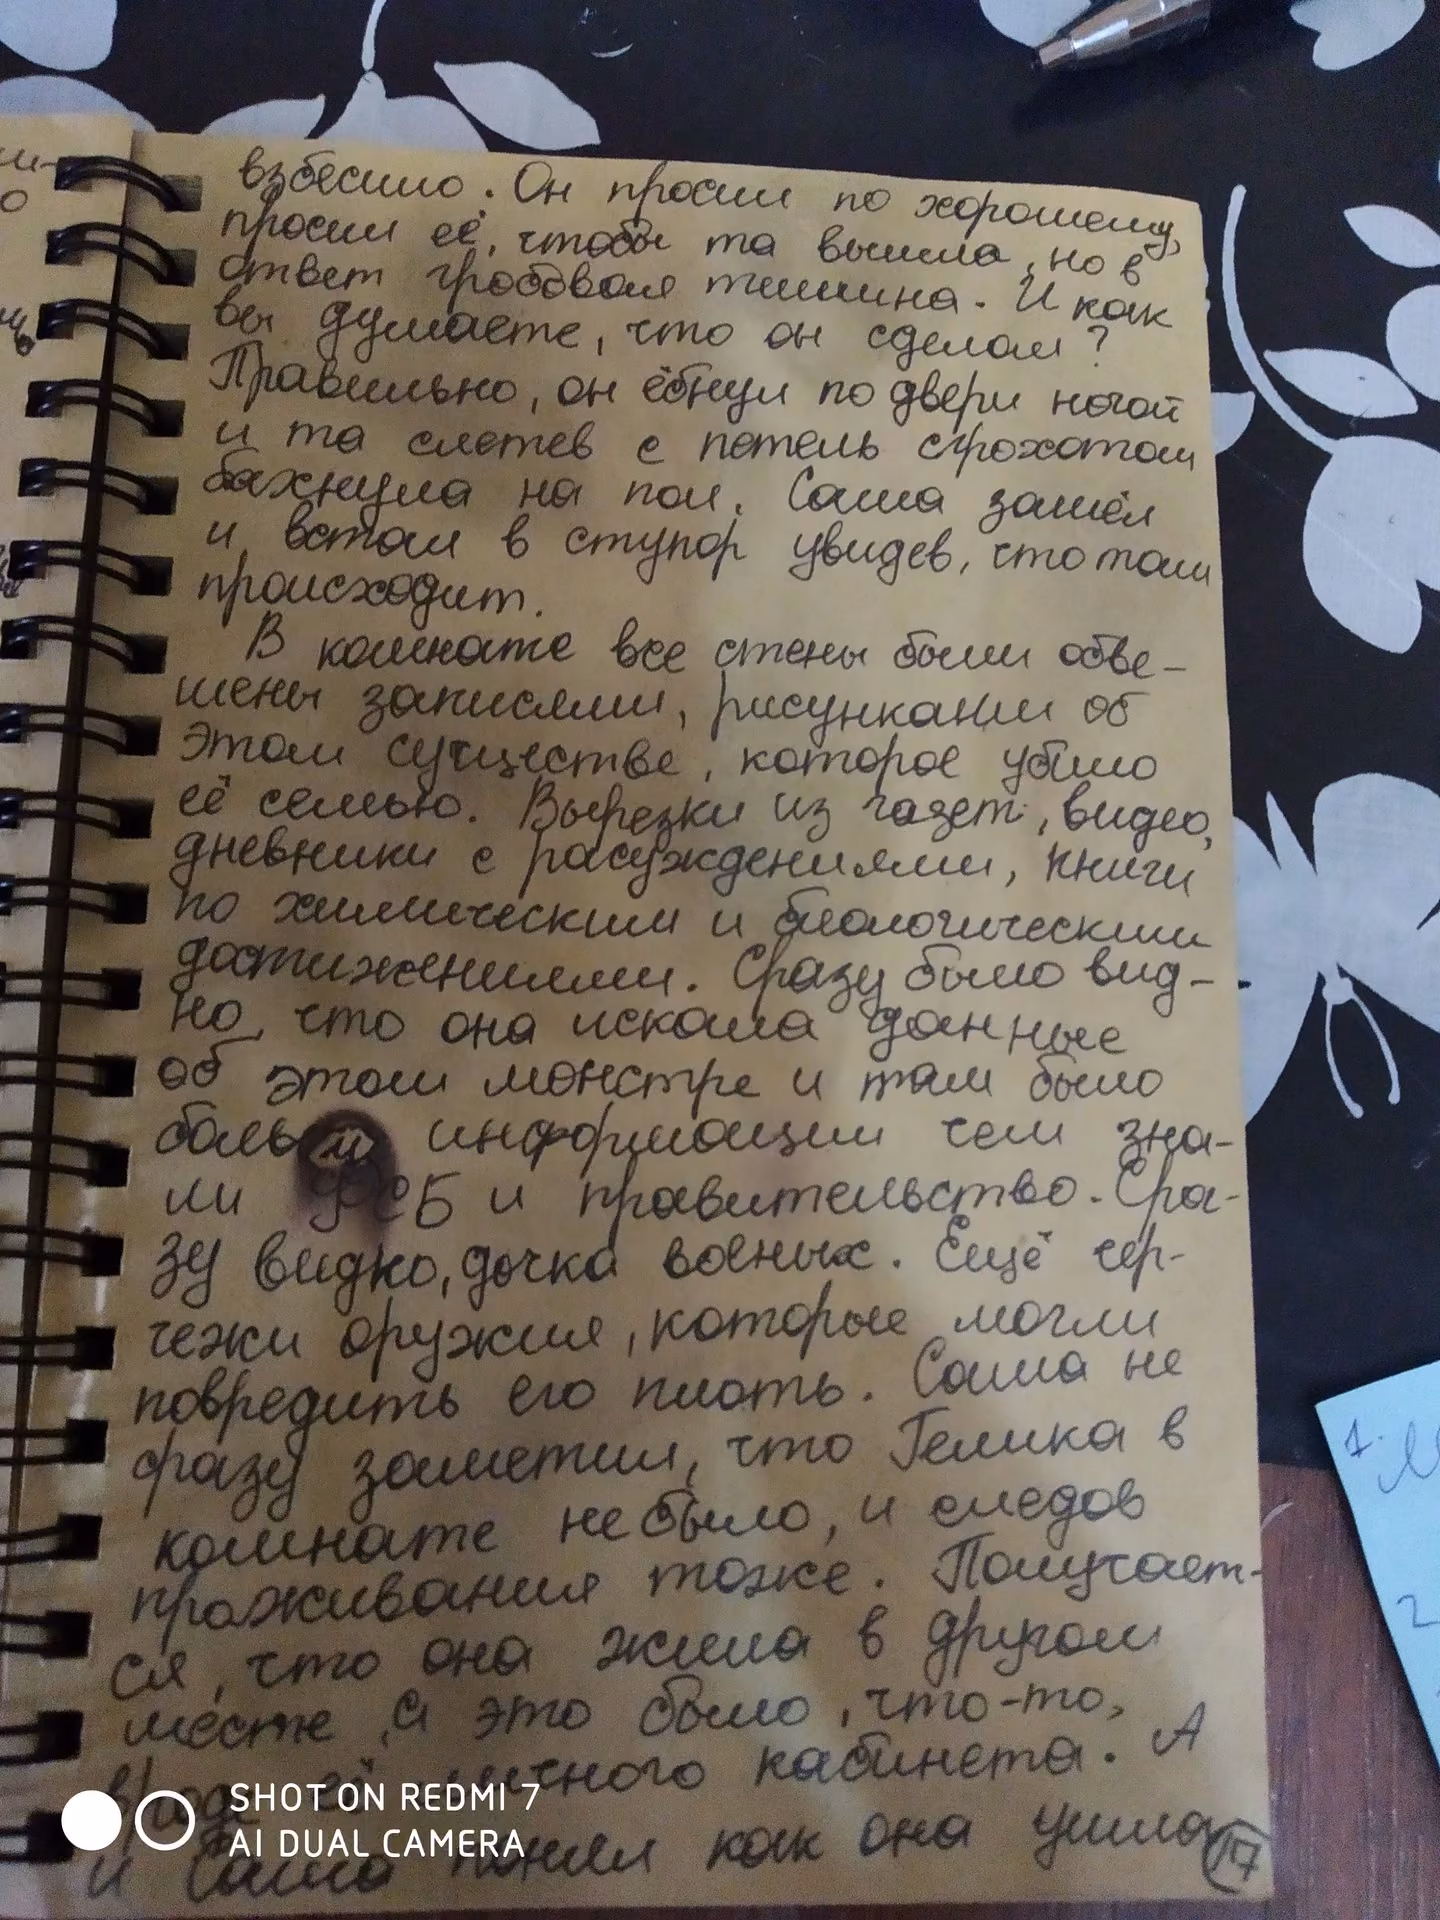 взбесило. Он просил по хорошему,
просил её, чтобы та вышла, но в
ответ гробовая тишина. И как
вы думаете, что он сделал?
Правильно, он ёбнул по двери ногой
и та слетев с петель с грохотом
бахнула на пол. Саша зашёл
и встал в ступор увидев, что там
происходит.
В комнате все стены были обве-
шены записями, рисунками об
этом существе, которое убило
её семью. Вырезки из газет, видео,
дневники с расуждениями, книги
по химическим и биологическим
достижениями. Сразу было вид-
но, что она искала данные
об этом монстре и там было
больш информации чем зна-
ли ФСБ и правительство. Сра-
зу видно, дочка военых. Ещё чер-
чежи оружия, которые могли
повредить его плоть. Саша не
сразу заметил, что Гелика в
комнате не было, и следов
проживания тоже. Получает-
ся, что она жила в другом
месте, а это было, что-то,
вроде её личного кабинета. А
и Саша понял как она ушла
17
1.
2
SHOT ON REDMI 7
AI DUAL CAMERA